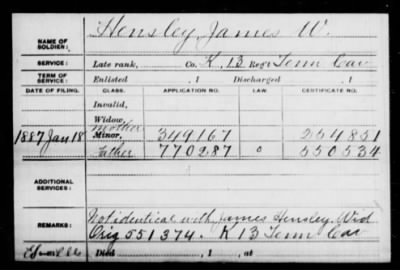 NAME OF SOLDIER: Hensley, James W.
SERVICE: Late rank, Co. K, 13 Reg't Tenn Cav
TERM OF SERVICE: Enlisted , 1 Discharged , 1
DATE OF FILING. CLASS. APPLICATION NO. LAW. CERTIFICATE NO.
Invalid,
Widow,
mother
1887 Jan 18 Minor. 349167 254851
Father 770287 0 550534
ADDITIONAL SERVICES:
REMARKS: Not identical with James Hensley. Wid
Orig 551374. K 13 Tenn Cav
Died , 1 , at